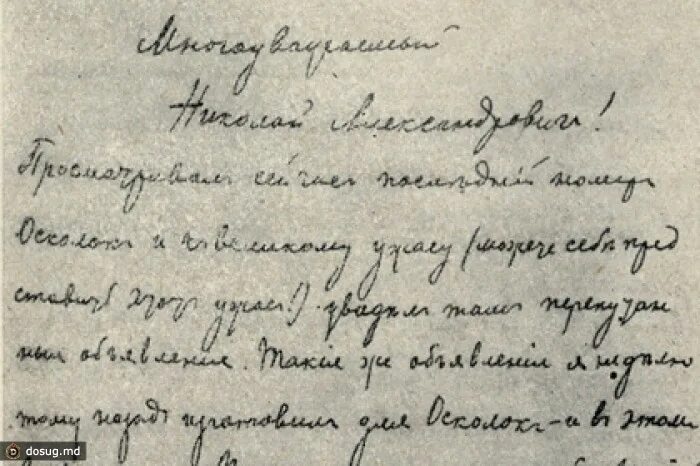 Многоуважаемый
Николай Александровичъ!
Просматривалъ сейчасъ послѣдній номеръ
Осколокъ и къ великому ужасу (можете себѣ пред
ставить этотъ ужасъ!) увидѣлъ тамъ перепутан
ныя объявленія. Такія же объявленія я недѣлю
тому назадъ изготовилъ для Осколокъ – и въ этомъ
dosug.md